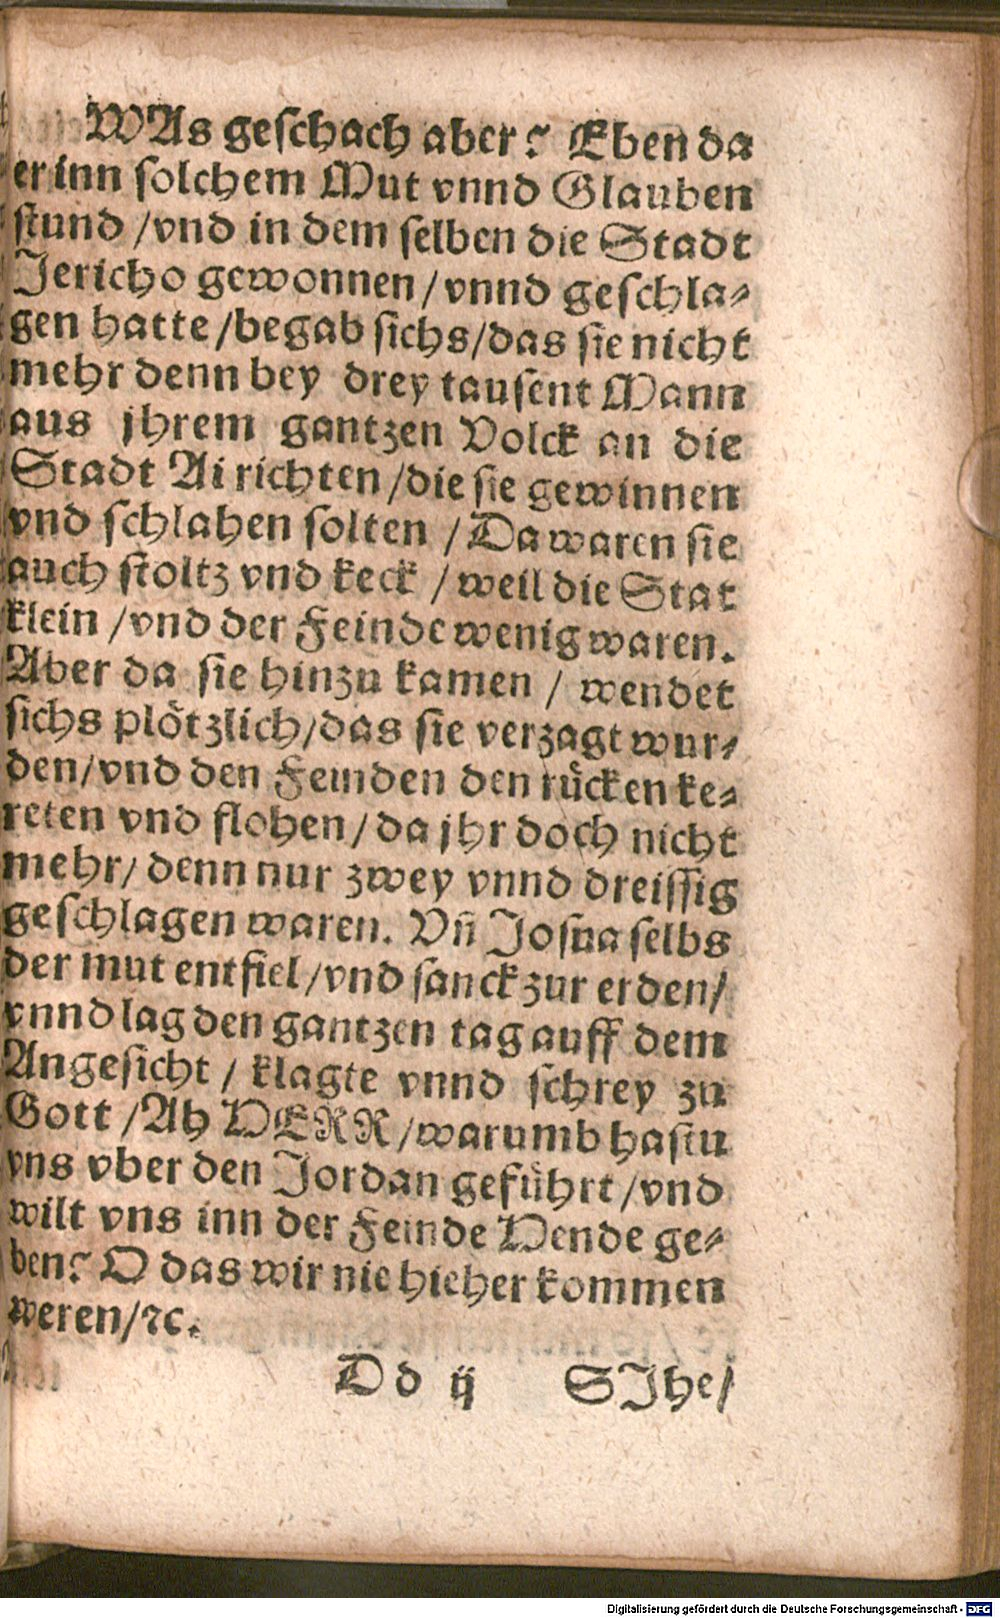 WAs geschach aber? Eben da
er inn solchem Mut vnnd Glauben
stund /vnd in dem selben die Stadt
Jericho gewonnen/vnnd geschla-
gen hatte/begab sichs/das sie nicht
mehr denn bey drey tausent Mann
aus jhrem gantzen Volck an die
Stadt Ai richten/die sie gewinnen
vnd schlahen solten /Da waren sie
auch stoltz vnd keck /weil die Stat
klein /vnd der Feinde wenig waren.
Aber da sie hinzu kamen / wendet
sichs plötzlich/das sie verzagt wur-
den/vnd den Feinden den rücken ke-
reten vnd flohen/da jhr doch nicht
mehr/denn nur zwey vnnd dreissig
geschlagen waren. Vñ Josua selbs
der mut entfiel/vnd sanck zur erden/
vnnd lag den gantzen tag auff dem
Angesicht / klagte vnnd schrey zu
Gott /Ah HERR/warumb hastu
vns vber den Jordan geführt/vnd
wilt vns inn der Feinde Hende ge-
ben? O das wir nie hieher kommen
weren/ꝛc.
Dd ij SIhe/
Digitalisierung gefördert durch die Deutsche Forschungsgemeinschaft - DFG